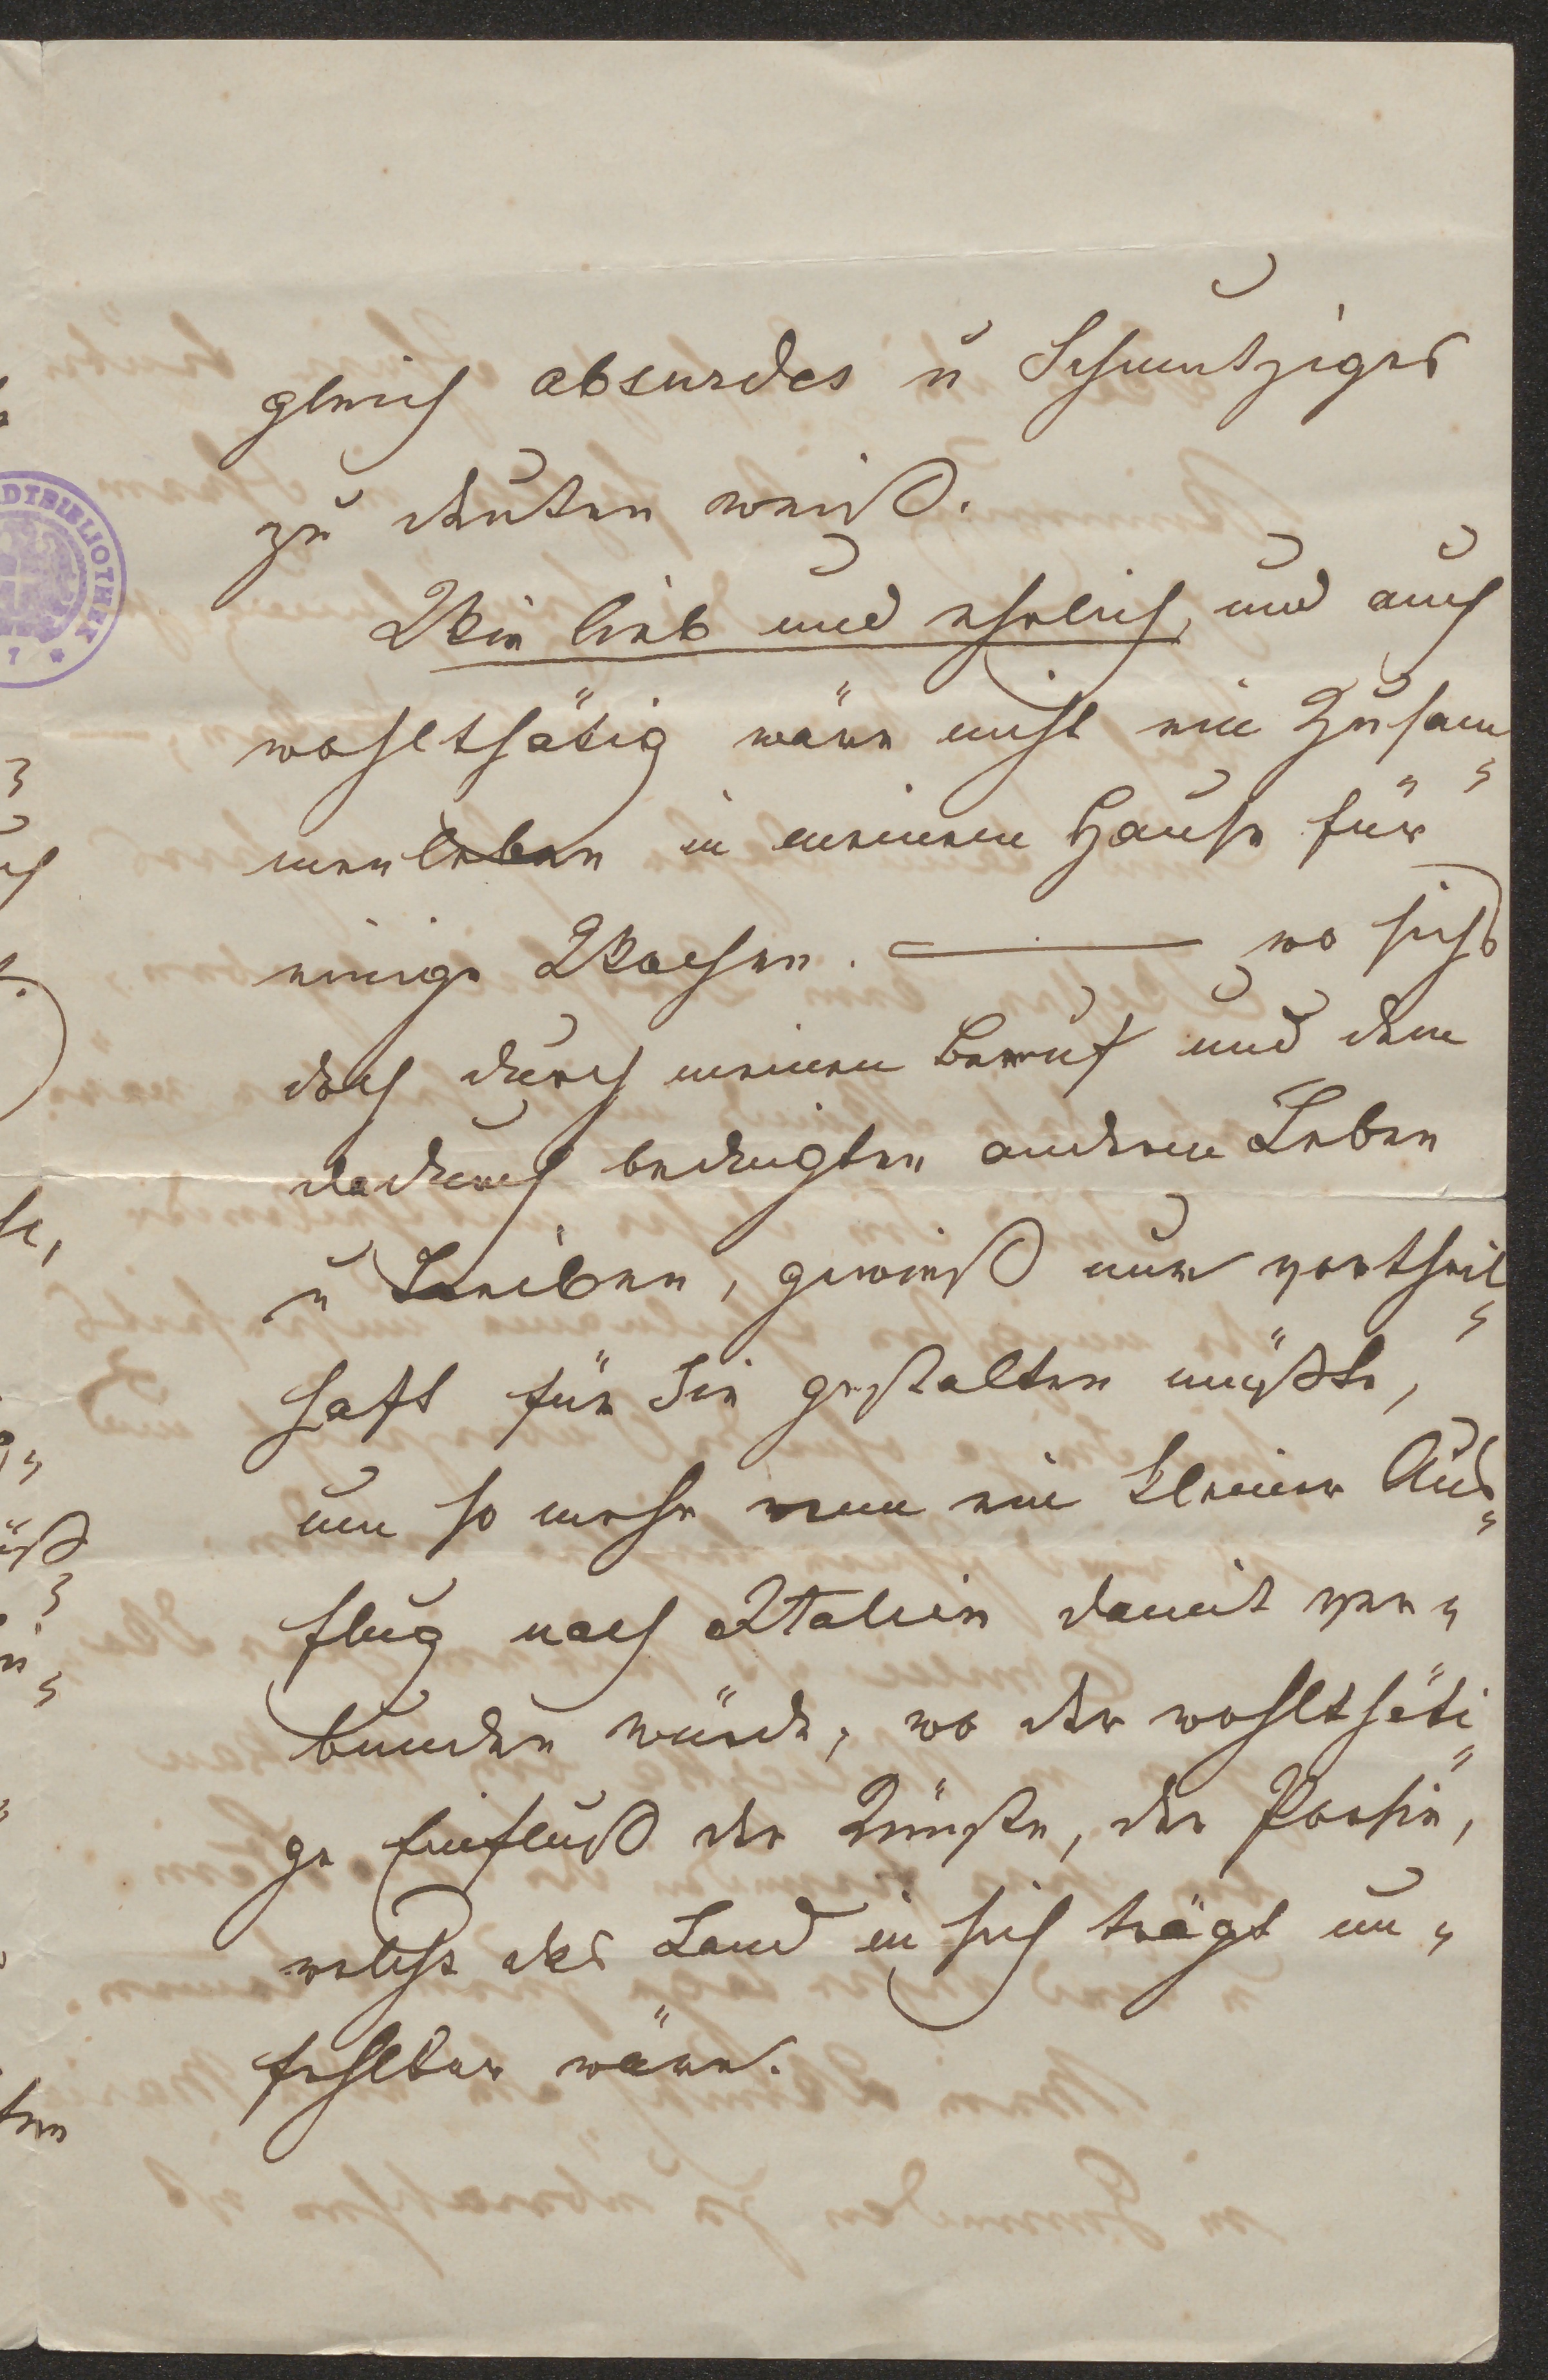 gleich absurdes u Schmutziges
zu deuten weiß.
Wie lieb und ehrlich, und auch
wohlthätig wäre nicht ein Zusam„
menleben in meinem Hause für
einige Wochen. — wo sichs
doch durch meinen Beruf und dem
dadurch bedingten anderen Leben
u Treiben, gewiß nur vortheil„
haft für Sie gestalten müßte,
um so mehr wenn ein kleiner Aus„
flug nach Italien damit ver„
bunden würde, wo der wohlthäti„
ge Einfluß der Künste, der Poesie,
welche das Land in sich trägt un„
fehlbar wäre.
DTBIBLIOTHEK